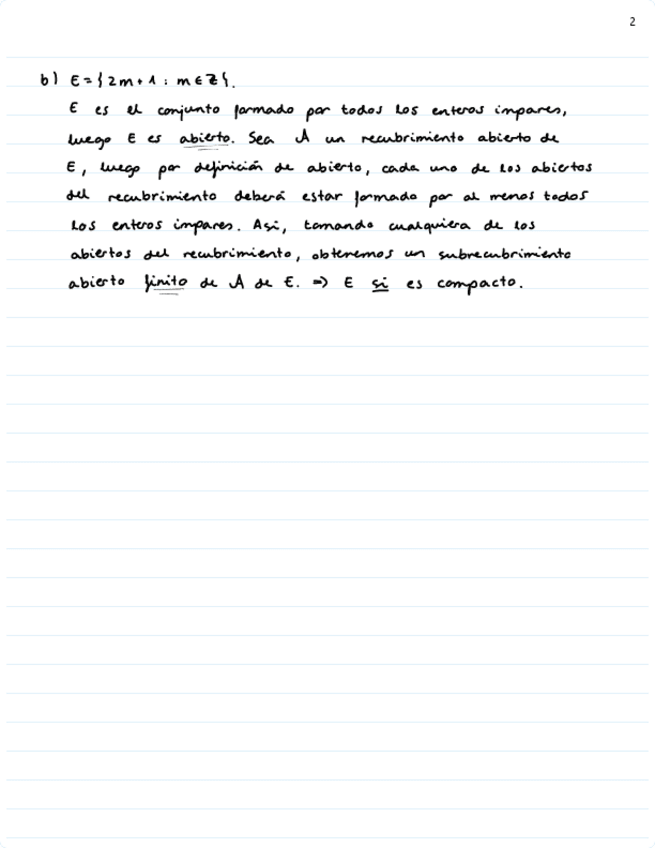 2
b) E = {2m+1 : m ∈ ℤ}.
E es el conjunto formado por todos los enteros impares,
luego E es abierto. Sea A un recubrimiento abierto de
E, luego por definición de abierto, cada uno de los abiertos
del recubrimiento deberá estar formado por al menos todos
los enteros impares. Así, tomando cualquiera de los
abiertos del recubrimiento, obtenemos un subrecubrimiento
abierto finito de A de E. => E sí es compacto.